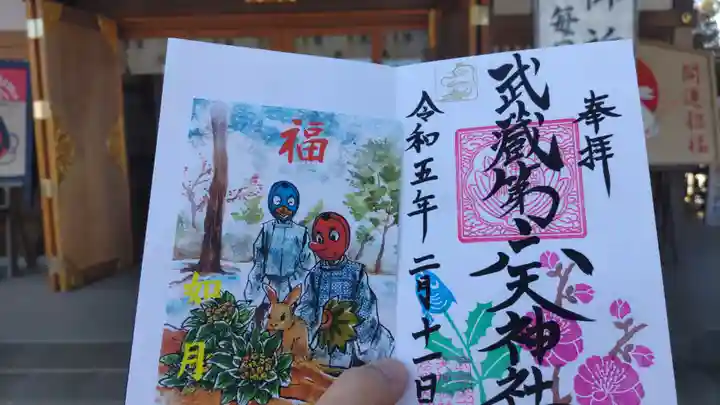 奉拝
武蔵第六天神社
令和五年二月十一日
福
如月
開運招福
毎